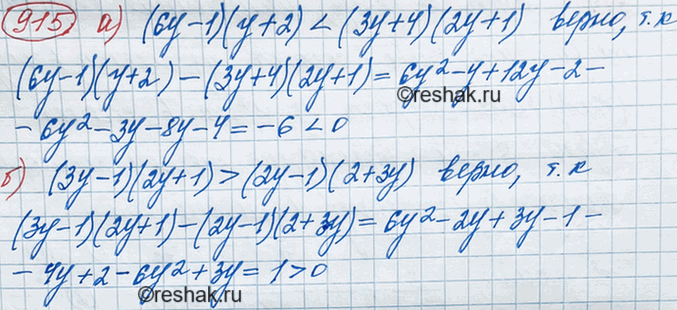 915 а) (6y-1)(y+2) < (3y+4)(2y+1) верно, т.к
(6y-1)(y+2) - (3y+4)(2y+1) = 6y² - y + 12y - 2 -
©reshak.ru
- 6y² - 3y - 8y - 4 = -6 < 0
б) (3y-1)(2y+1) > (2y-1)(2+3y) верно, т.к
(3y-1)(2y+1) - (2y-1)(2+3y) = 6y² - 2y + 3y - 1 -
- 4y + 2 - 6y² + 3y = 1 > 0
©reshak.ru